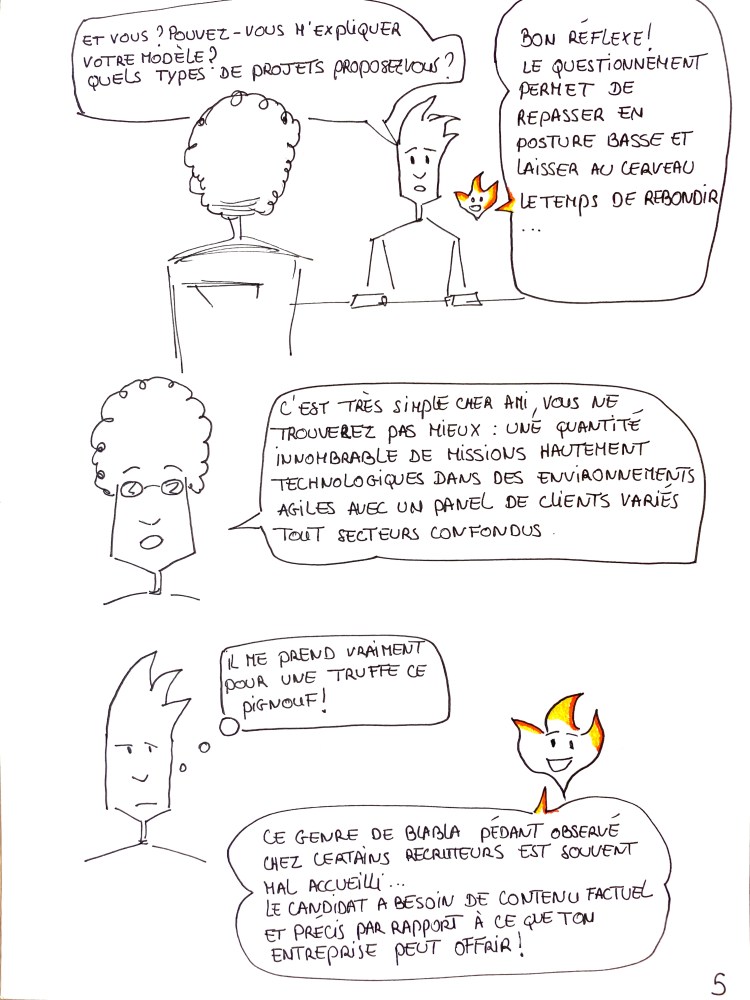 ET VOUS ? POUVEZ-VOUS M'EXPLIQUER
VOTRE MODÈLE ?
QUELS TYPES DE PROJETS PROPOSEZ VOUS ?
BON RÉFLEXE !
LE QUESTIONNEMENT
PERMET DE
REPASSER EN
POSTURE BASSE ET
LAISSER AU CERVEAU
LE TEMPS DE REBONDIR
...
C'EST TRÈS SIMPLE CHER AMI, VOUS NE
TROUVEREZ PAS MIEUX : UNE QUANTITÉ
INNOMBRABLE DE MISSIONS HAUTEMENT
TECHNOLOGIQUES DANS DES ENVIRONNEMENTS
AGILES AVEC UN PANEL DE CLIENTS VARIÉS
TOUT SECTEURS CONFONDUS.
IL ME PREND VRAIMENT
POUR UNE TRUFFE CE
PIGNOUF !
CE GENRE DE BLABLA PÉDANT OBSERVÉ
CHEZ CERTAINS RECRUTEURS EST SOUVENT
MAL ACCUEILLI...
LE CANDIDAT A BESOIN DE CONTENU FACTUEL
ET PRÉCIS PAR RAPPORT À CE QUE TON
ENTREPRISE PEUT OFFRIR !
5